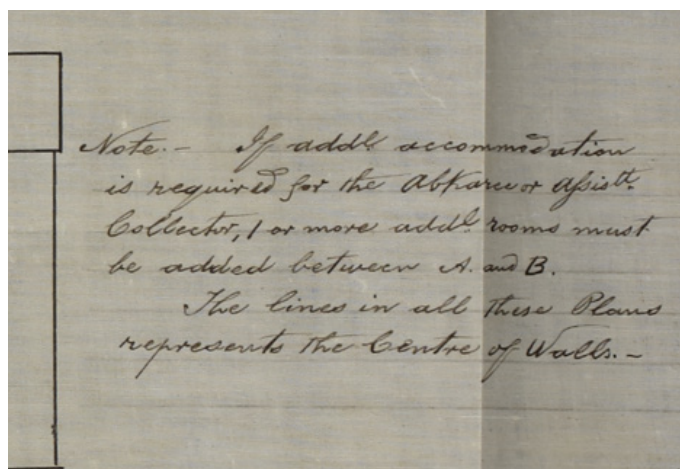 Note. - If addl. accommodation
is required for the Abkaree or Assistt.
Collector, 1 or more addl. rooms must
be added between A. and B.
The lines in all these Plans
represents the Centre of Walls. -